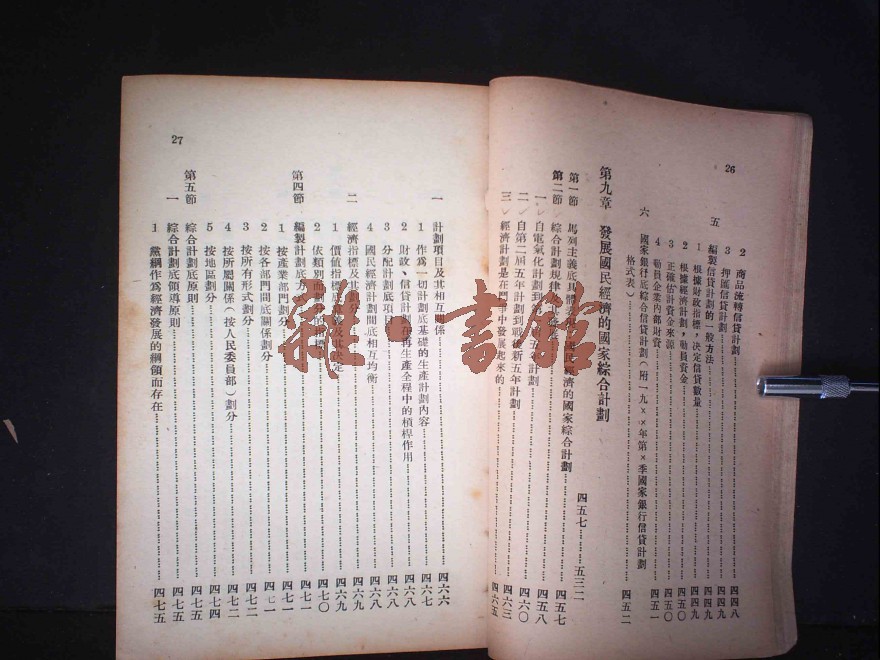 26
2 商品流轉信貸計劃……四四八
3 押匯信貸計劃……四四九
五 編製信貸計劃的一般方法……四四九
1 根據財政指標，決定信貸數量……四四九
2 根據經濟計劃，動員資金……四五〇
3 正確估計資金來源……四五〇
4 動員企業內部財資……四五一
六 國家銀行底綜合信貸計劃（附一九××年第×季國家銀行信貸計劃
格式表）……四五二
第九章 發展國民經濟的國家綜合計劃……四五七……五三二
第一節 馬列主義底具體 國民經濟的國家綜合計劃……四五七
第二節 綜合計劃規律……四五八
一 自電氣化計劃到 五 計劃……四六〇
二 自第二屆五年計劃到戰後新五年計劃……四六三
三 經濟計劃是在鬥爭中發展起來的……四六五
27
一 計劃項目及其相互關係……四六六
1 作為一切計劃底基礎的生產計劃內容……四六七
2 財政、信貸計劃在再生產全程中的槓桿作用……四六八
3 分配計劃底項目……四六八
4 國民經濟計劃間底相互均衡……四六八
二 經濟指標及其劃分……四六九
1 價值指標底 及其決定……四六九
2 依類別而劃分的指標……四七〇
第四節 編製計劃底方式……四七一
1 按產業部門劃分……四七一
2 按各部門間底關係劃分……四七一
3 按所有形式劃分……四七二
4 按所屬關係（按人民委員部）劃分……四七二
5 按地區劃分……四七四
第五節 綜合計劃底原則……四七五
一 綜合計劃底領導原則……四七五
1 黨綱作為經濟發展的綱領而存在……四七五